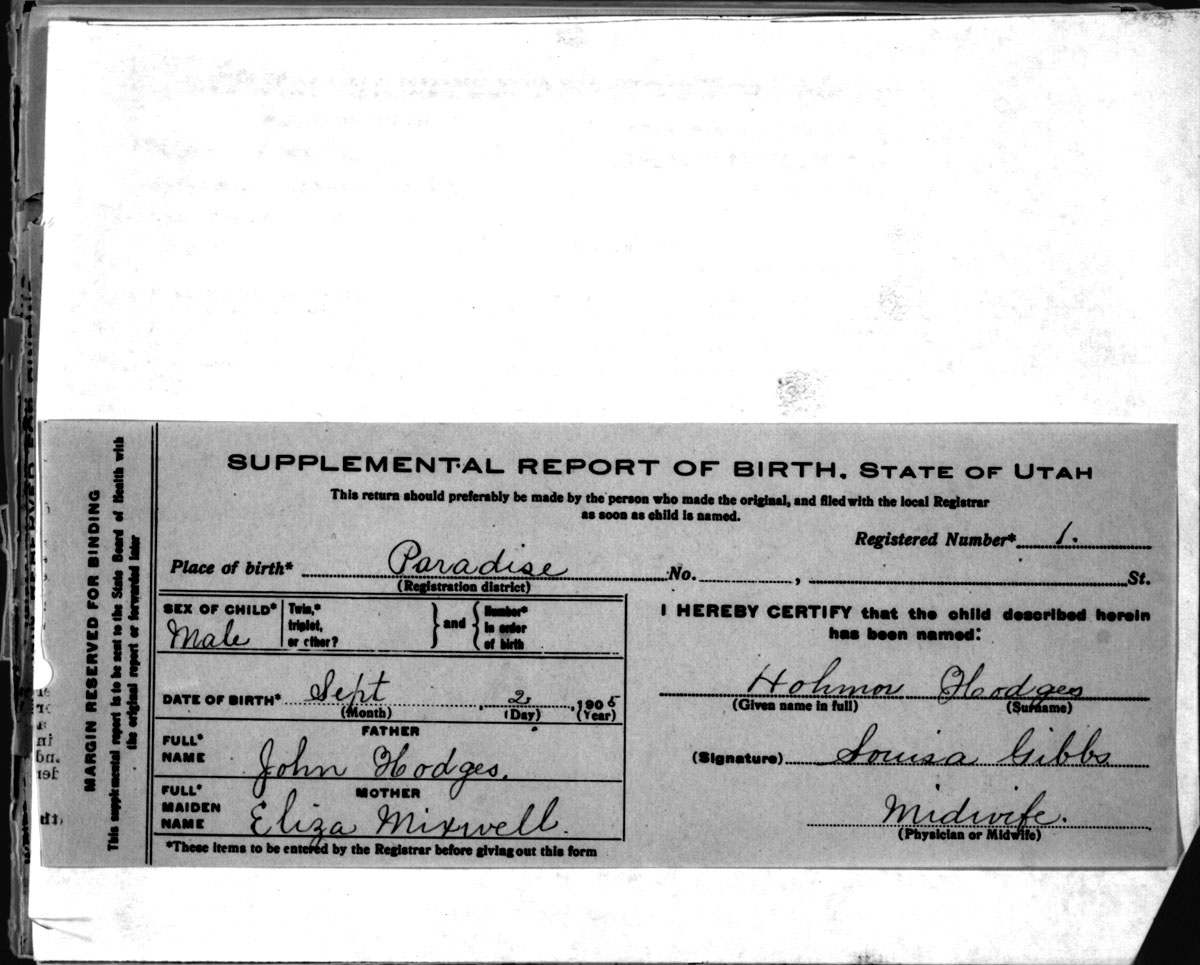 SUPPLEMENTAL REPORT OF BIRTH. STATE OF UTAH
This return should preferably be made by the person who made the original, and filed with the local Registrar
as soon as child is named.
Registered Number* 1.
Place of birth* Paradise No. , St.
(Registration district)
SEX OF CHILD*
Male
Twin,*
triplet,
or other?
and
Number*
in order
of birth
DATE OF BIRTH* Sept , 2 , 1905
(Month) (Day) (Year)
FATHER
FULL*
NAME
John Hodges.
MOTHER
FULL*
MAIDEN
NAME
Eliza Mixwell.
*These items to be entered by the Registrar before giving out this form
I HEREBY CERTIFY that the child described herein
has been named:
Hohmor Hodges
(Given name in full) (Surname)
(Signature) Louisa Gibbs
Midwife.
(Physician or Midwife)
MARGIN RESERVED FOR BINDING
This supplemental report is to be sent to the State Board of Health with
the original report or forwarded later